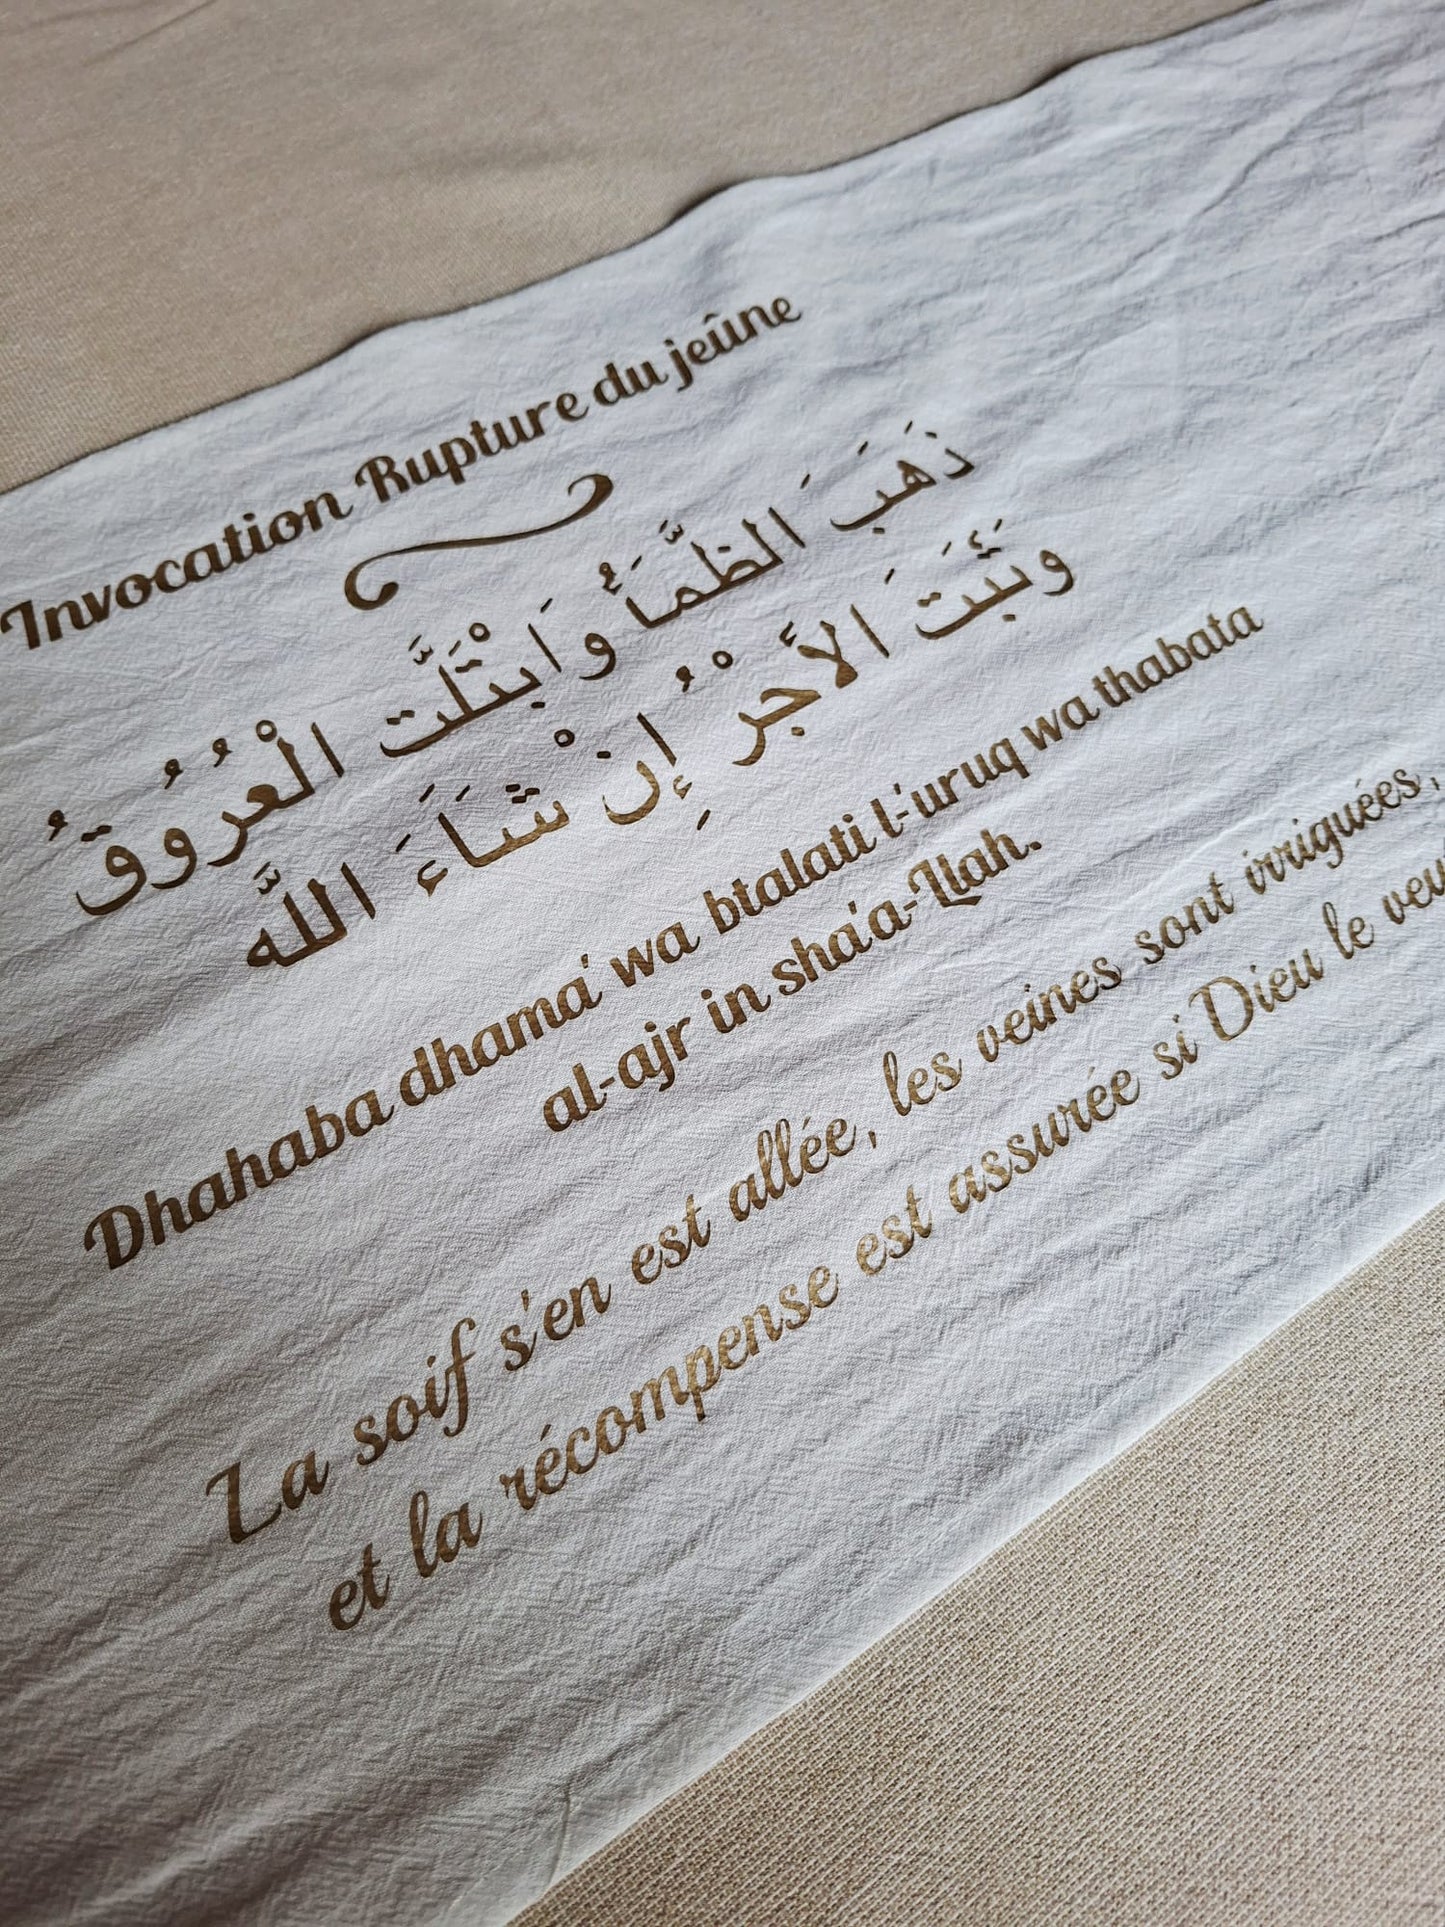 Invocation Rupture du jeûne
ذَهَبَ الظَّمَأُ وَابْتَلَّتِ الْعُرُوقُ
وَثَبَتَ الأَجْرُ إِنْ شَاءَ اللَّه
Dhahaba dhama' wa btalati l-'uruq wa thabata
al-ajr in sha'a-Llah.
La soif s'en est allée, les veines sont irriguées,
et la récompense est assurée si Dieu le